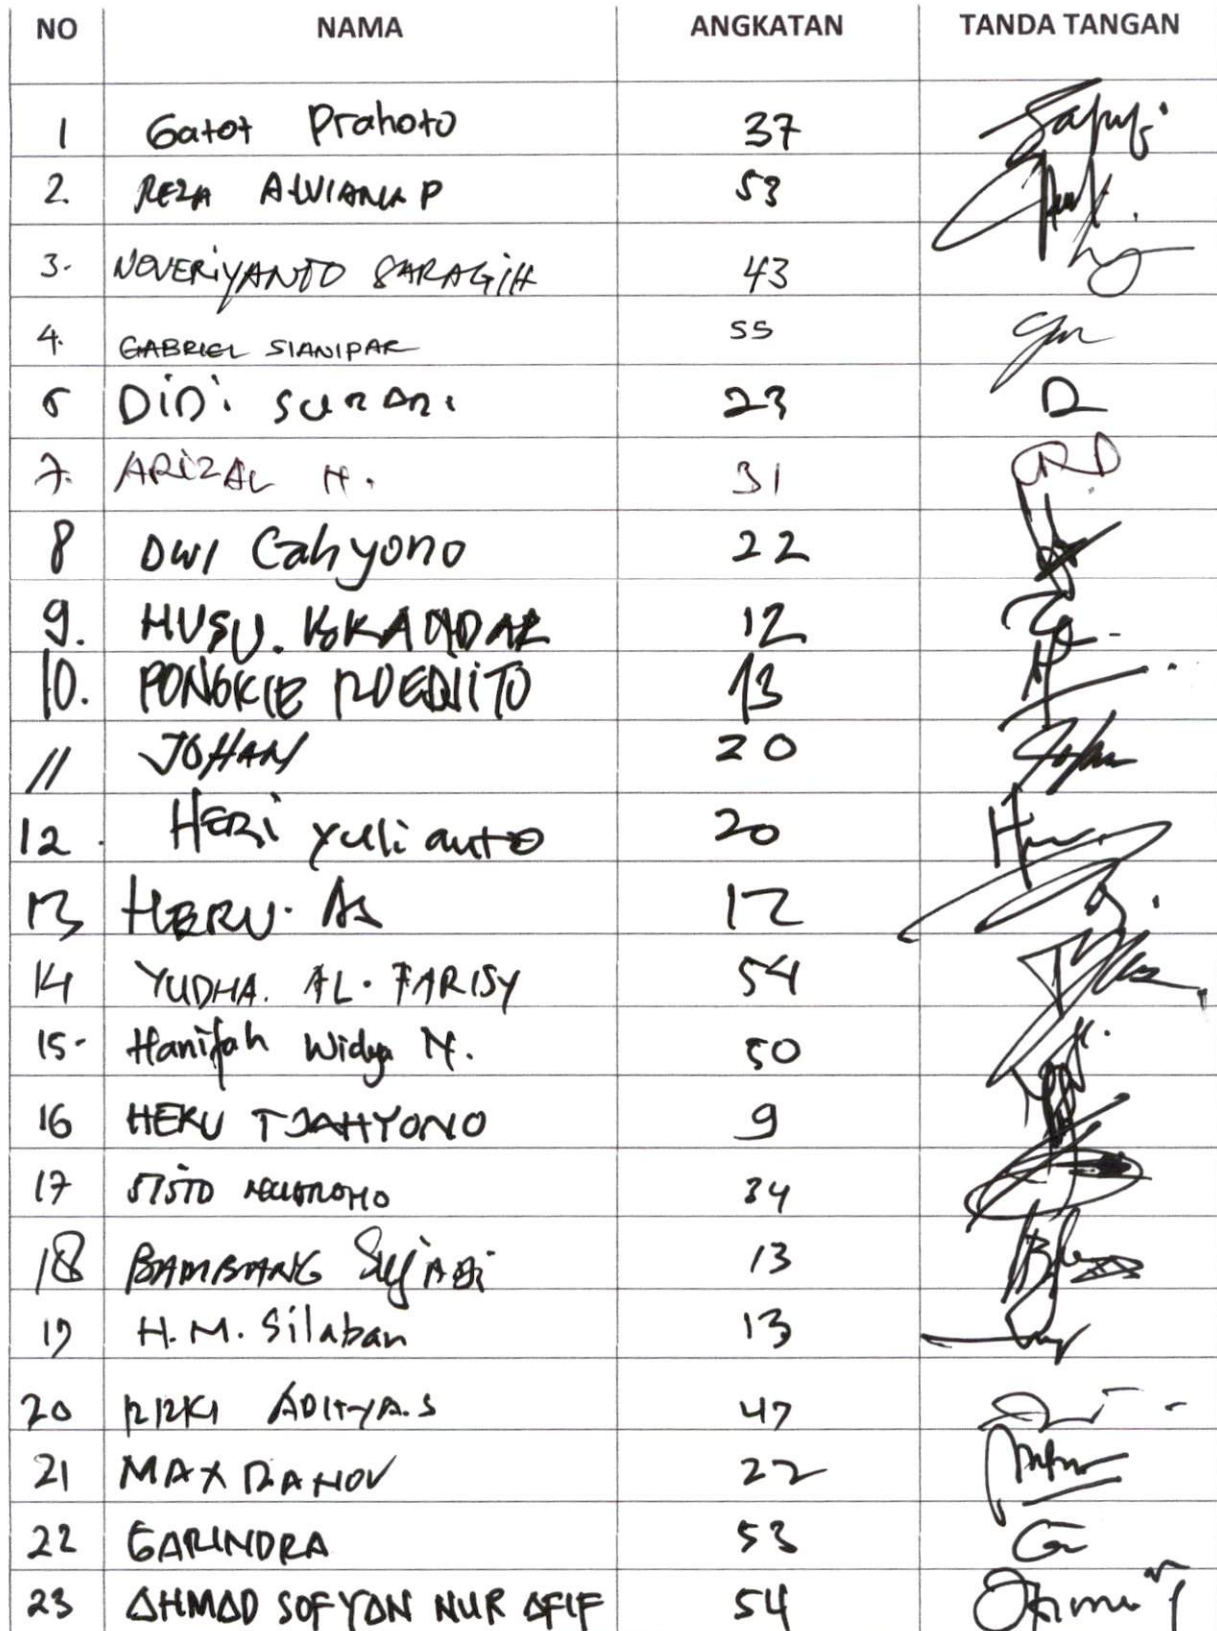 NO NAMA ANGKATAN TANDA TANGAN
1 Gatot Prahoto 37
2. REZA ALVIANA P 53
3. NOVERIYANTO SARAGIH 43
4. GABRIEL SIANIPAR 55
6 DiDi SURADI 23
7. ARIZAL H. 31
8 DWI Cahyono 22
9. HUSU. ISKANDAR 12
10. PONGKIE 13
11 JOHAN 20
12. HERI Yulianto 20
13 HERU. AS 12
14 YUDHA. AL. FARISY 54
15. Hanifah Widya N. 50
16 HERU TJAHYONO 9
17 SISTO 34
18 BAMBANG Sujadi 13
19 H.M. Silaban 13
20 RIZKI ADITYA.S 47
21 MAX RANOV 22
22 GARINDRA 53
23 AHMAD SOFYAN NUR AFIF 54